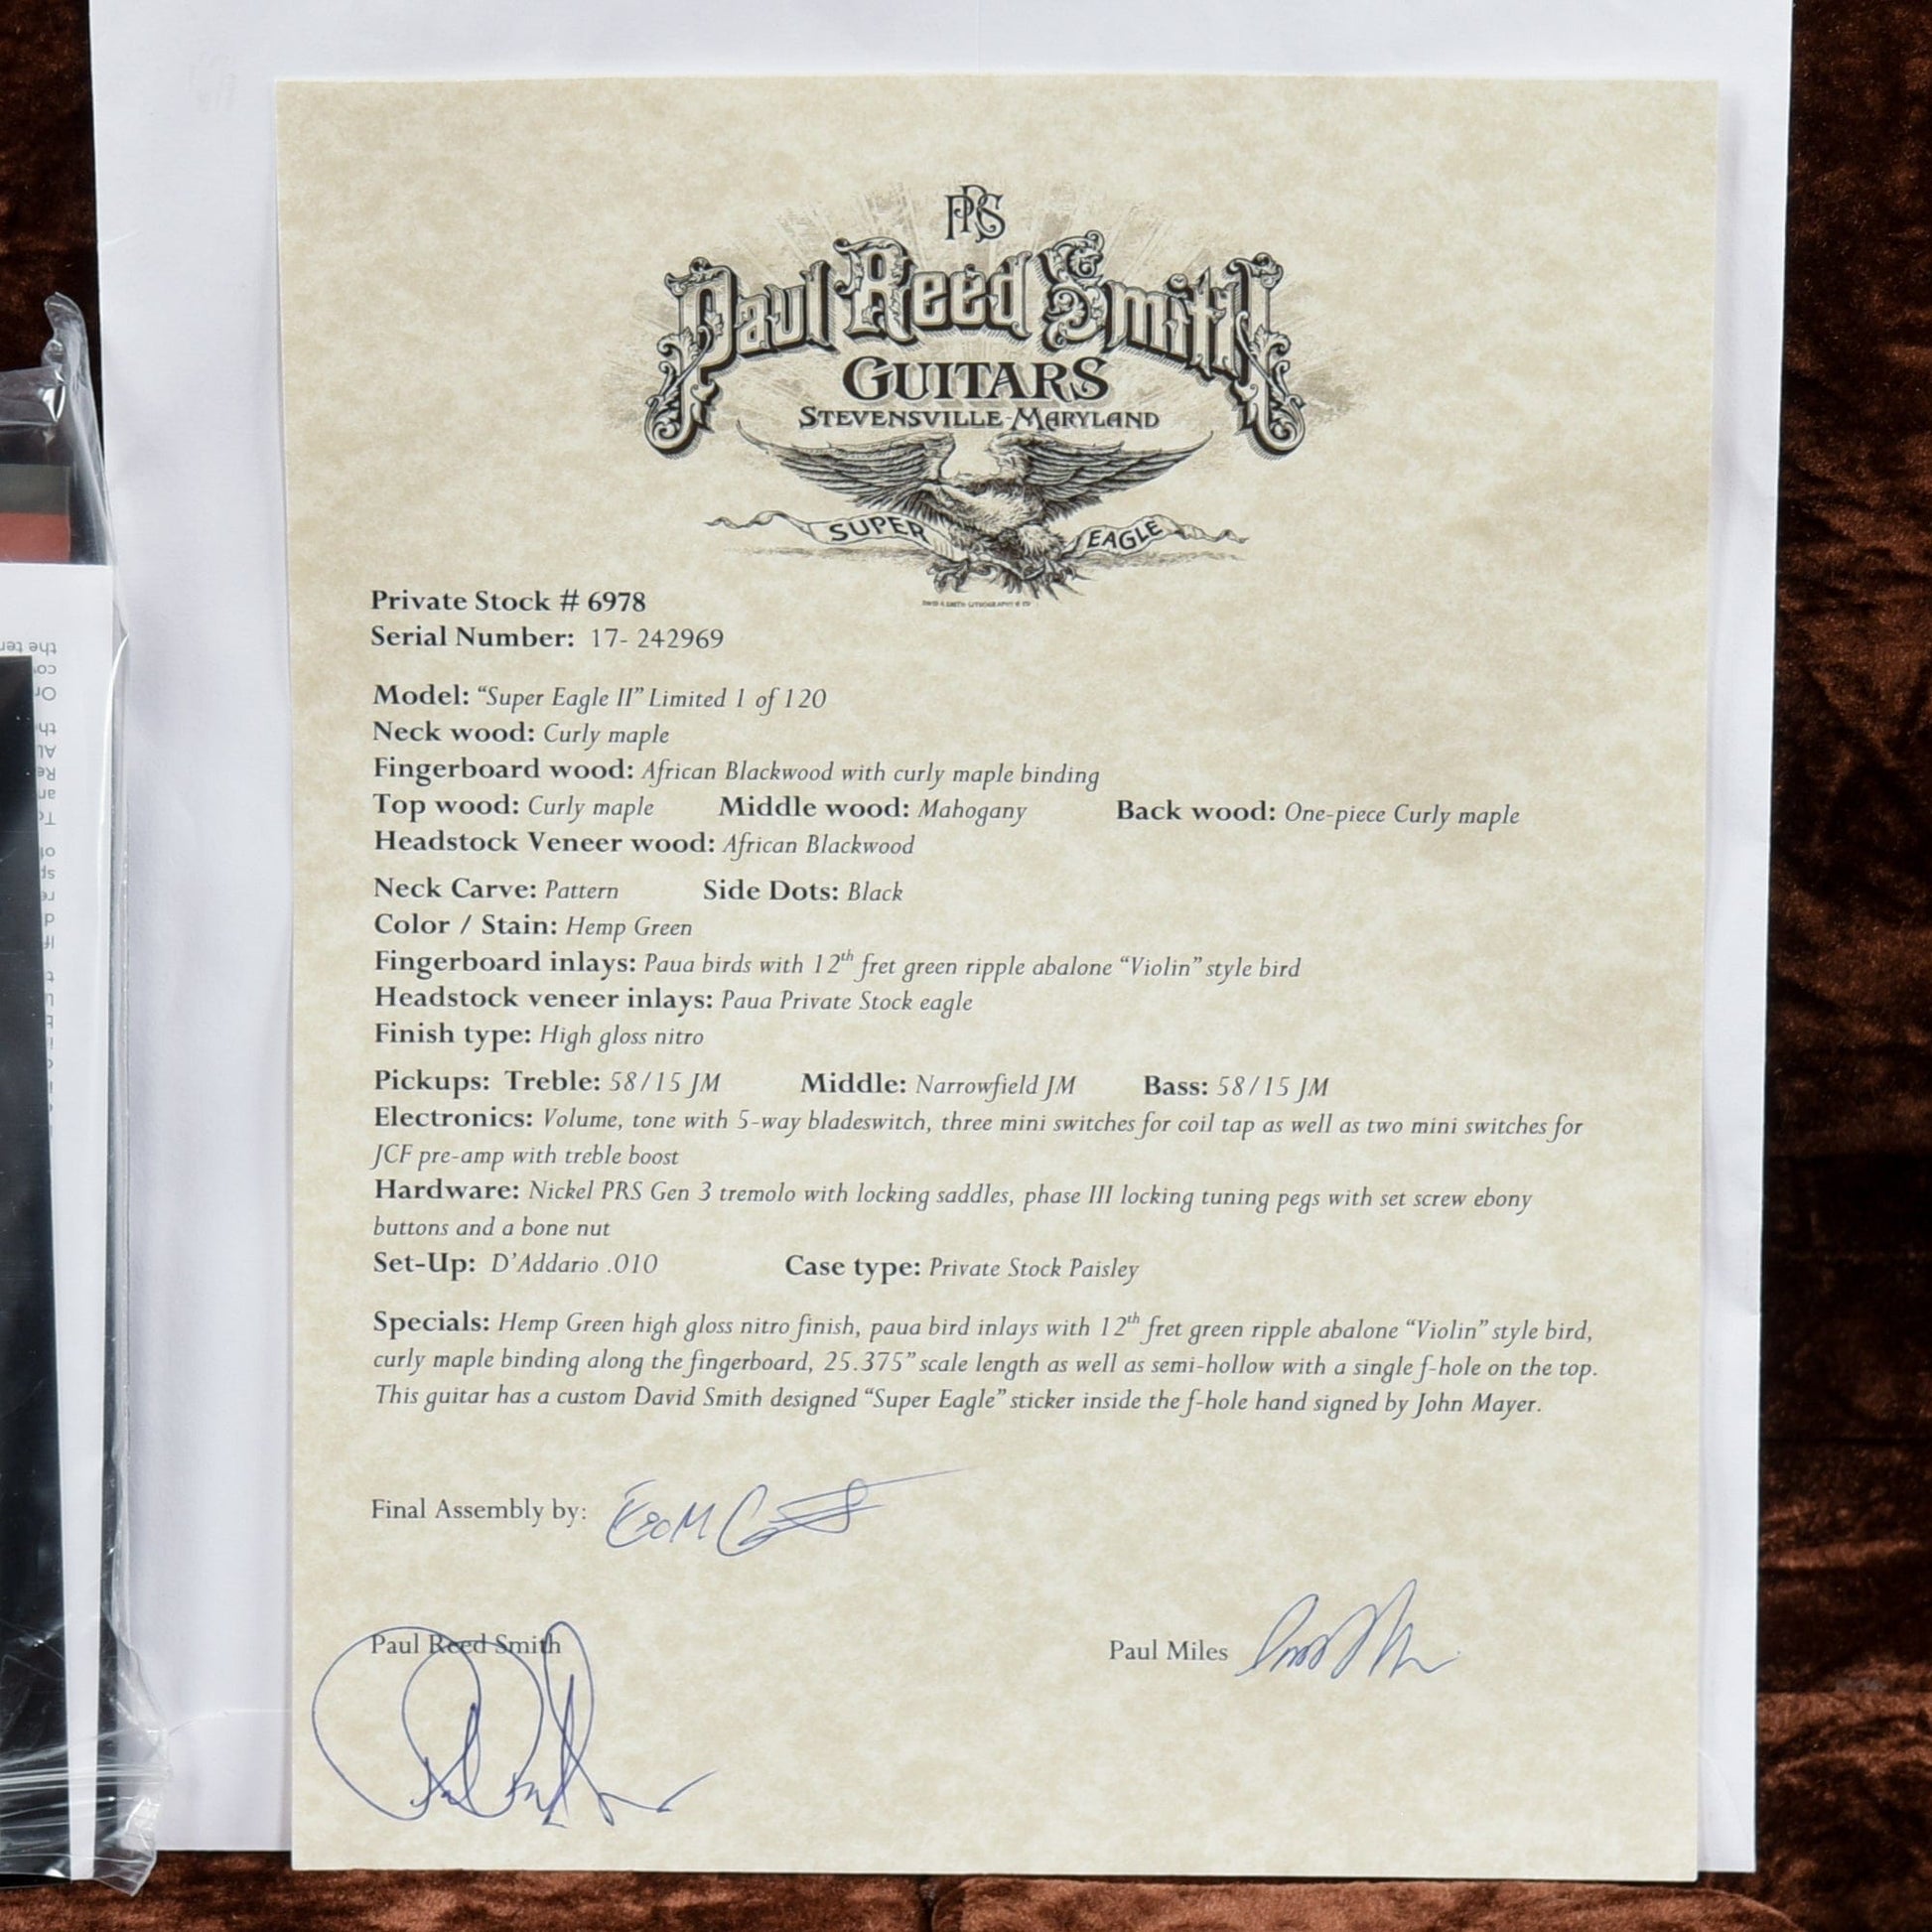 PRS
Paul Reed Smith
GUITARS
STEVENSVILLE-MARYLAND
SUPER EAGLE
Private Stock # 6978
Serial Number: 17- 242969
Model: “Super Eagle II” Limited 1 of 120
Neck wood: Curly maple
Fingerboard wood: African Blackwood with curly maple binding
Top wood: Curly maple Middle wood: Mahogany Back wood: One-piece Curly maple
Headstock Veneer wood: African Blackwood
Neck Carve: Pattern Side Dots: Black
Color / Stain: Hemp Green
Fingerboard inlays: Paua birds with 12th fret green ripple abalone “Violin” style bird
Headstock veneer inlays: Paua Private Stock eagle
Finish type: High gloss nitro
Pickups: Treble: 58/15 JM Middle: Narrowfield JM Bass: 58/15 JM
Electronics: Volume, tone with 5-way bladeswitch, three mini switches for coil tap as well as two mini switches for
JCF pre-amp with treble boost
Hardware: Nickel PRS Gen 3 tremolo with locking saddles, phase III locking tuning pegs with set screw ebony
buttons and a bone nut
Set-Up: D’Addario .010 Case type: Private Stock Paisley
Specials: Hemp Green high gloss nitro finish, paua bird inlays with 12th fret green ripple abalone “Violin” style bird,
curly maple binding along the fingerboard, 25.375” scale length as well as semi-hollow with a single f-hole on the top.
This guitar has a custom David Smith designed “Super Eagle” sticker inside the f-hole hand signed by John Mayer.
Final Assembly by:
Paul Reed Smith
Paul Miles